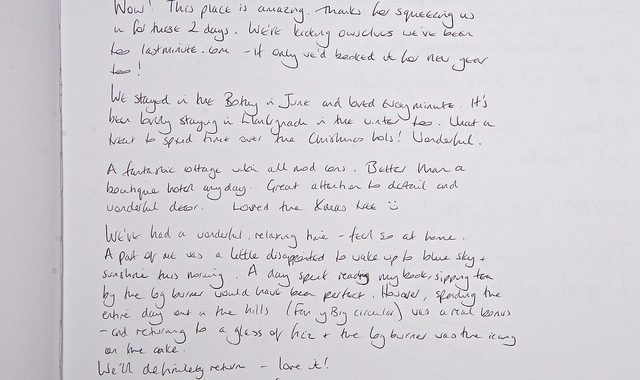 Wow! This place is amazing. Thanks for squeezing us
in for these 2 days. We're kicking ourselves we've been
too lastminute.com - if only we'd booked it for new year
too!
We stayed in the Bothy in June and loved every minute. It's
been lovely staying in in the winter too. What a
treat to spend time over the Christmas hols! Wonderful.
A fantastic cottage with all mod cons. Better than a
boutique hotel any day. Great attention to detail and
wonderful decor. Loved the Xmas tree ☺
We've had a wonderful, relaxing time - feel so at home.
A part of me was a little disappointed to wake up to blue sky +
sunshine this morning. A day spent reading my book, sipping tea
by the log burner would have been perfect. However, spending the
entire day out in the hills (Fan y Big circular) was a real bonus
- and returning to a glass of fizz + the log burner was the icing
on the cake.
We'll definitely return - love it!